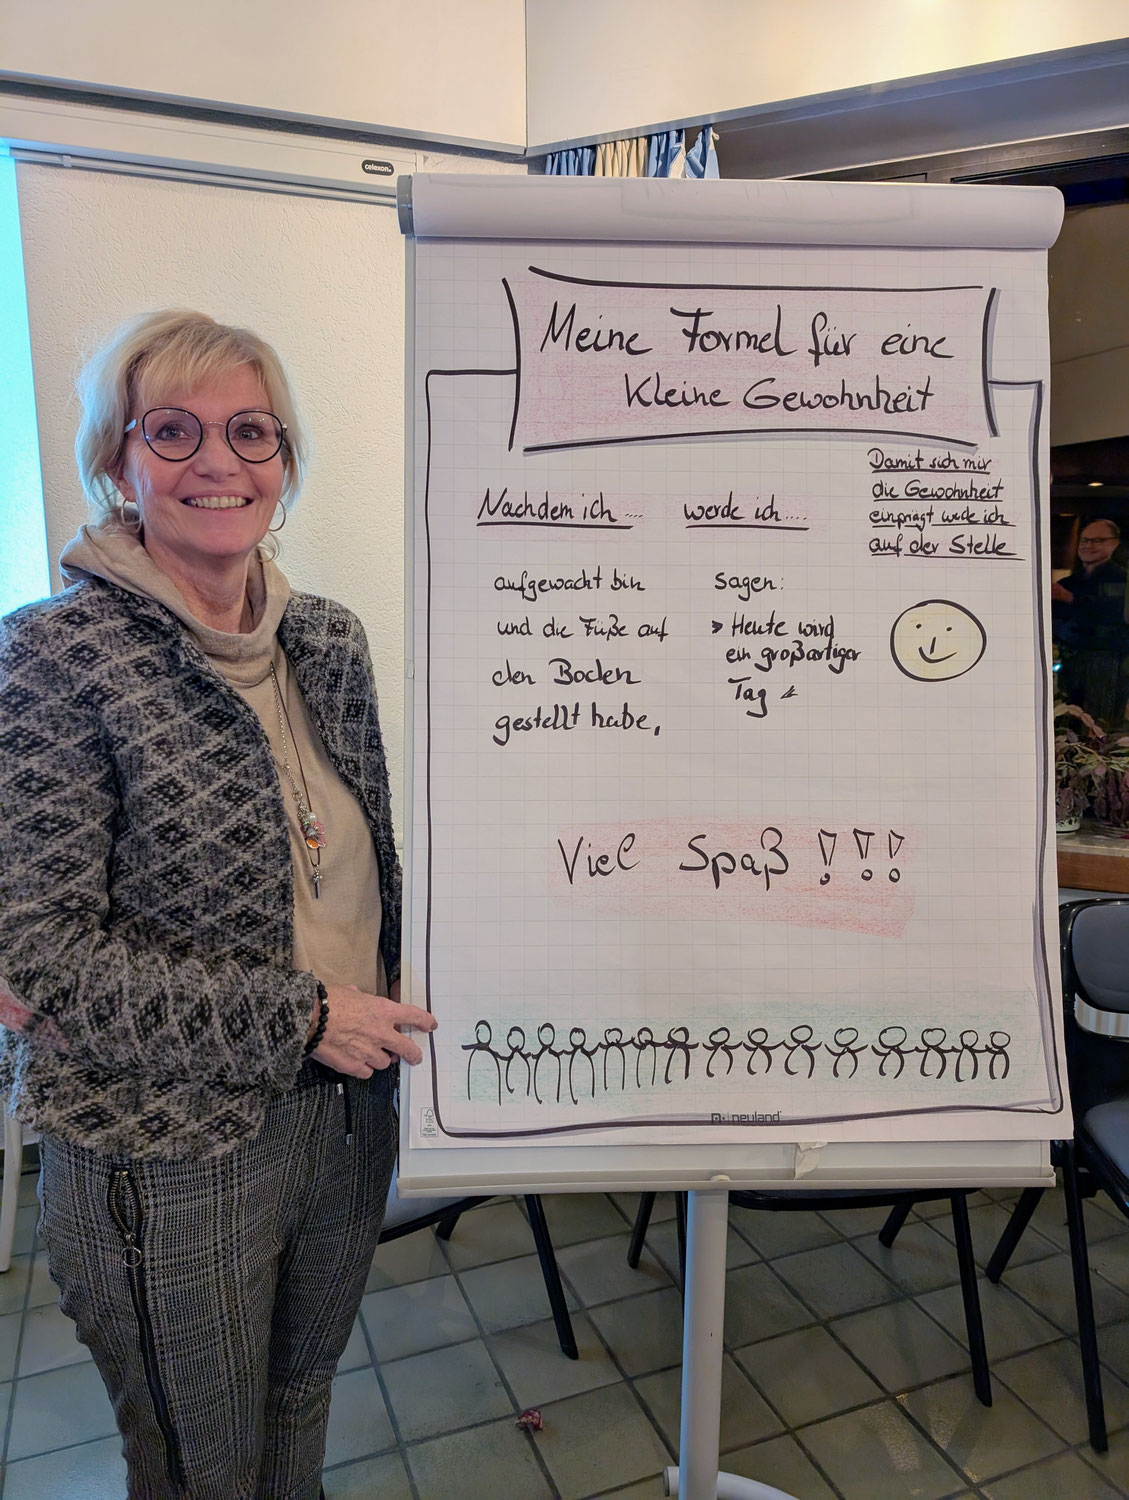 celexon
Meine Formel für eine
Kleine Gewohnheit
Damit sich mir
die Gewohnheit
einprägt werde ich
auf der Stelle
Nachdem ich .... werde ich ....
aufgewacht bin
und die Füße auf
den Boden
gestellt habe,
sagen:
» Heute wird
ein großartiger
Tag «
Viel Spaß !!!
neuland